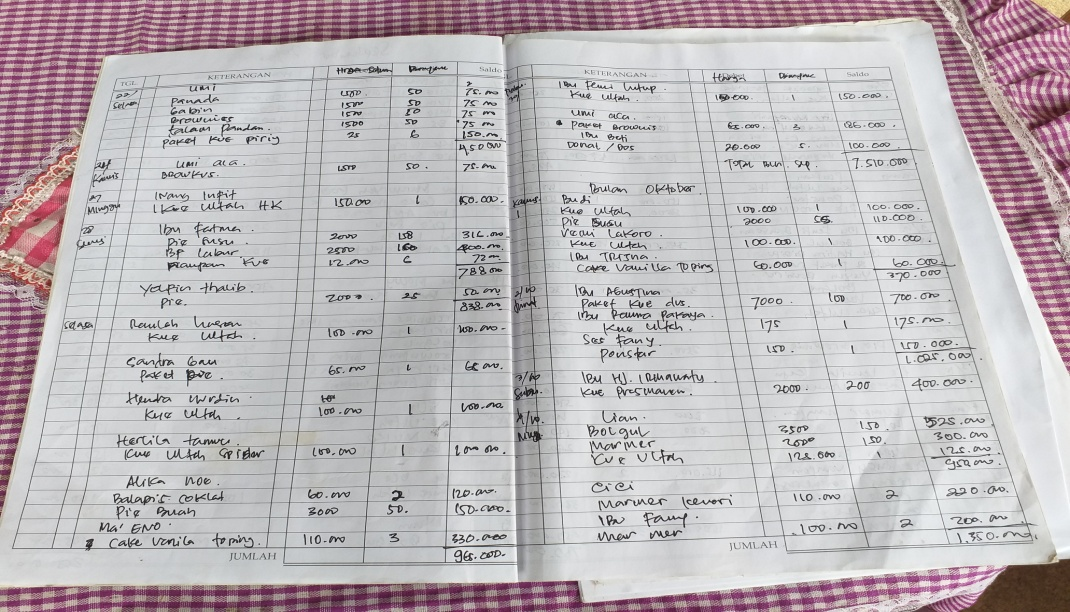 TGL KETERANGAN Saldo
22/ Umi
Selasa Panada 1500 50 75.000
Gabin 1500 50 75 000
Brownies 1500 50 75 000
Talam Pandan. 1500 50 75 000
Paket Kue piriy 25 6 150.000
450 000
Kamis Umi aca.
Browkus. 1500 50. 75.000
27 Inang Infit
Minggu 1 Kue Ultah HK 150.000 1 150.000.
28 Ibu Fatma.
Senin Pie Susu 2000 158 316.000
Bp Labur 2500 160 400.000
Kue 12.000 6 72
788.000
Yolpin thalib 50.000
Pie. 2000 25 838.000
Selasa Ramlah Hasan
Kue Ultah 100.000 1 100.000.
Sandra Gau
Paket Pie. 65.000 1 65 000
Hendra Nurdin
Kue Ultah 100.000 1 100.000.
Herlila tamu.
Kue Ultah Spider 100.000 1 100 000
Alika noe.
Balapis Coklat 60.000 2 120.000.
Pie Buah 3000 50. 150.000.
Ma' ENO.
Cake Vanila toping. 110.000 3 330.000
JUMLAH 965.000.
KETERANGAN Harga Saldo
Ibu Femi Hutup.
Kue Ultah. 150.000. 1 150.000.
Umi aca.
Paket Brownis 65.000. 3
Ibu Beti
Donat / Dos 20.000 5. 100.000
Total Bulan Sep. 7.510.000
Bulan Oktober.
Kamis. Budi
1 Kue Ultah 100.000 1 100.000.
Pie Susu 2000 55 110.000.
Lakoro.
Kue Ultah. 100.000. 1 100.000.
Ibu Trisna
Cake Vanilla Toping 60.000 1 60.000.
370.000
2/10 Ibu Agustina
Jumat Paket Kue dus. 7000 100 700.000
Ibu Rauna Papaya.
Kue Ultah. 175 1 175.000
Ses Fany
Ponstar 150. 1 150.000.
1.025.000
3/10 Ibu Hj. Irmawaty
Sabtu. Kue Presmanan. 2000 200 400.000.
4/10 Lian.
Minggu Bolgul 3500 150. 525.000
Marmer 2000 150. 300.000
Kue Ultah 125.000 1 125.000
950.000.
Cici
Marmer Kenari 110.000 2 220.000.
Ibu Fany.
Marmer 100.000 2 200.000
JUMLAH 1.350.000.